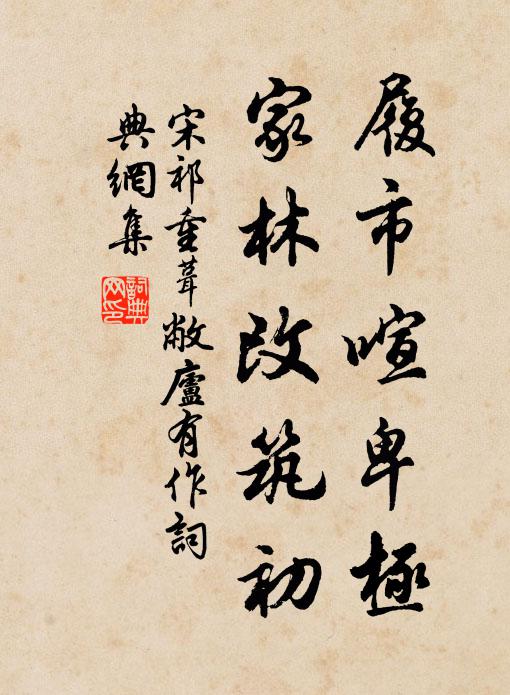 履市喧卑極
家林改筑初
宋祁重葺敝廬有作詞
典網集
詞典
网印